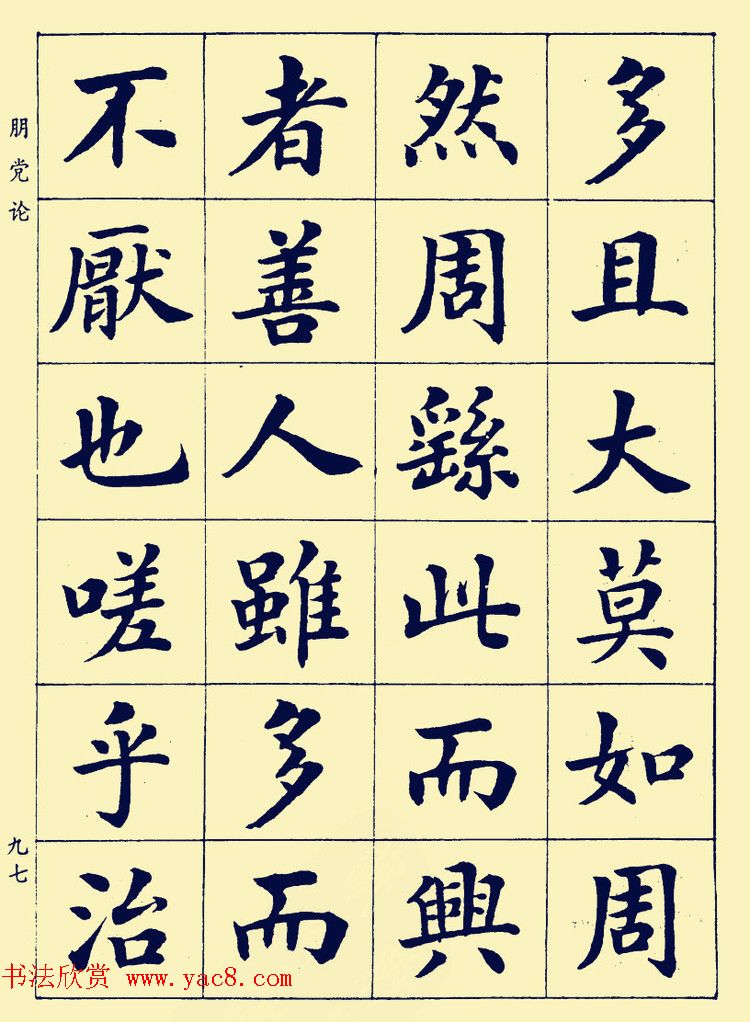 多且大莫如周
然周繇此而興
者善人雖多而
不厭也嗟乎治
朋党论
九七
书法欣赏 www.yac8.com